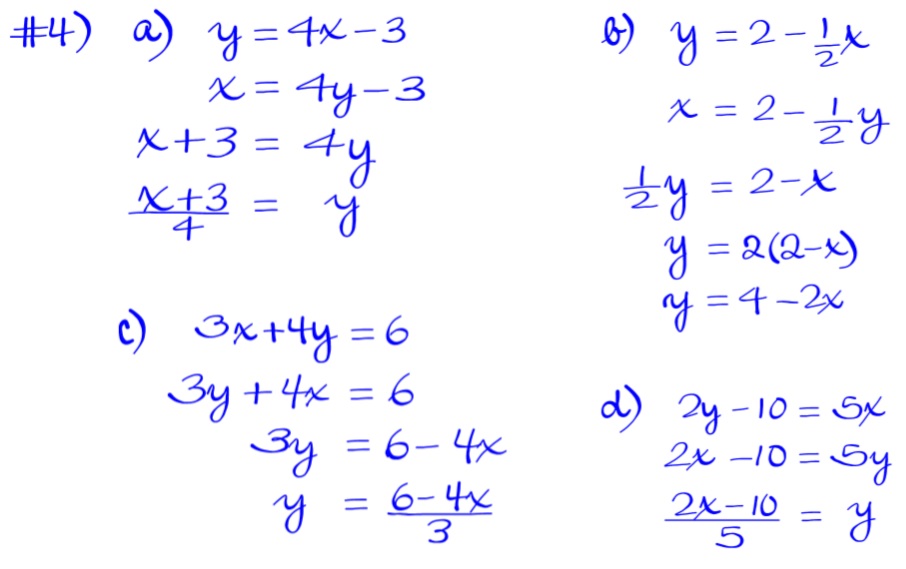 #4) a) y = 4x - 3
x = 4y - 3
x + 3 = 4y
x+3/4 = y
b) y = 2 - 1/2 x
x = 2 - 1/2 y
1/2 y = 2 - x
y = 2(2-x)
y = 4 - 2x
c) 3x + 4y = 6
3y + 4x = 6
3y = 6 - 4x
y = 6-4x/3
d) 2y - 10 = 5x
2x - 10 = 5y
2x-10/5 = y